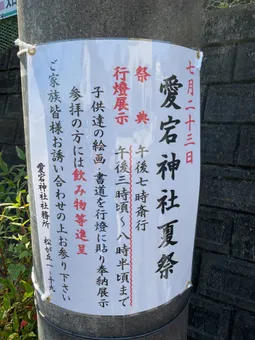 七月二十三日
愛宕神社夏祭
祭典 午後七時斎行
行燈展示 午後三時頃~八時半頃まで
子供達の絵画・書道を行燈に貼り奉納展示
参拝の方には飲み物等進呈
ご家族皆様お誘い合わせの上お参り下さい
愛宕神社社務所 松が丘一-十九